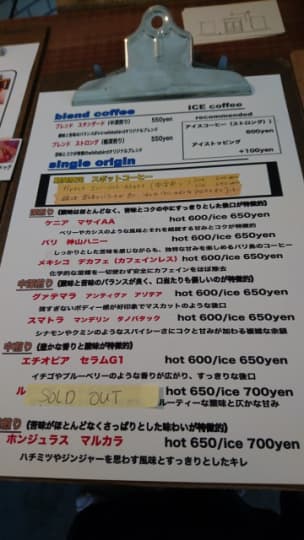 blend coffee
ICE coffee
ブレンド スタンダード (中深煎り) 550yen
ブレンド ストロング (極深煎り) 550yen
recommended
アイスコーヒー (ストロング)
600yen
アイストッピング
+100yen
single origin
スポットコーヒー
(酸味はほとんどなく、苦味とコクの中にすっきりとした後口が特徴的)
ケニア マサイAA hot 600/ice 650yen
ベリーやカシスのような風味とそれを縁隙する甘みとコクが特徴的
バリ 神山ハニー hot 600/ice 650yen
しっかりとした苦味を感じながらも、独特な甘みを楽しめるバリ島のコーヒー
メキシコ デカフェ (カフェインレス) hot 600/ice 650yen
化学的な溶媒を一切使わず安全にカフェインをほぼ除去
(酸味と苦味のバランスが良く、口当たりも優しいのが特徴的)
グァテマラ アンティグァ アゾテア hot 600/ice 650yen
強すぎないボディー感が好印象でマスカットのような後口
スマトラ マンデリン タノバタック hot 600/ice 650yen
シナモンやクミンのようなスパイシーさにコクと甘みが加わる複雑な余韻
(豊かな香りと酸味が特徴的)
エチオピア セラムG1 hot 600/ice 650yen
イチゴやブルーベリーのような香りが広がり、すっきりな後口
ル SOLD OUT hot 650/ice 700yen
ルーティーな酸味と仄かな甘み
(苦味がほとんどなくさっぱりとした味わいが特徴的)
ホンジュラス マルカラ hot 650/ice 700yen
ハチミツやジンジャーを思わす風味とすっきりとしたキレ